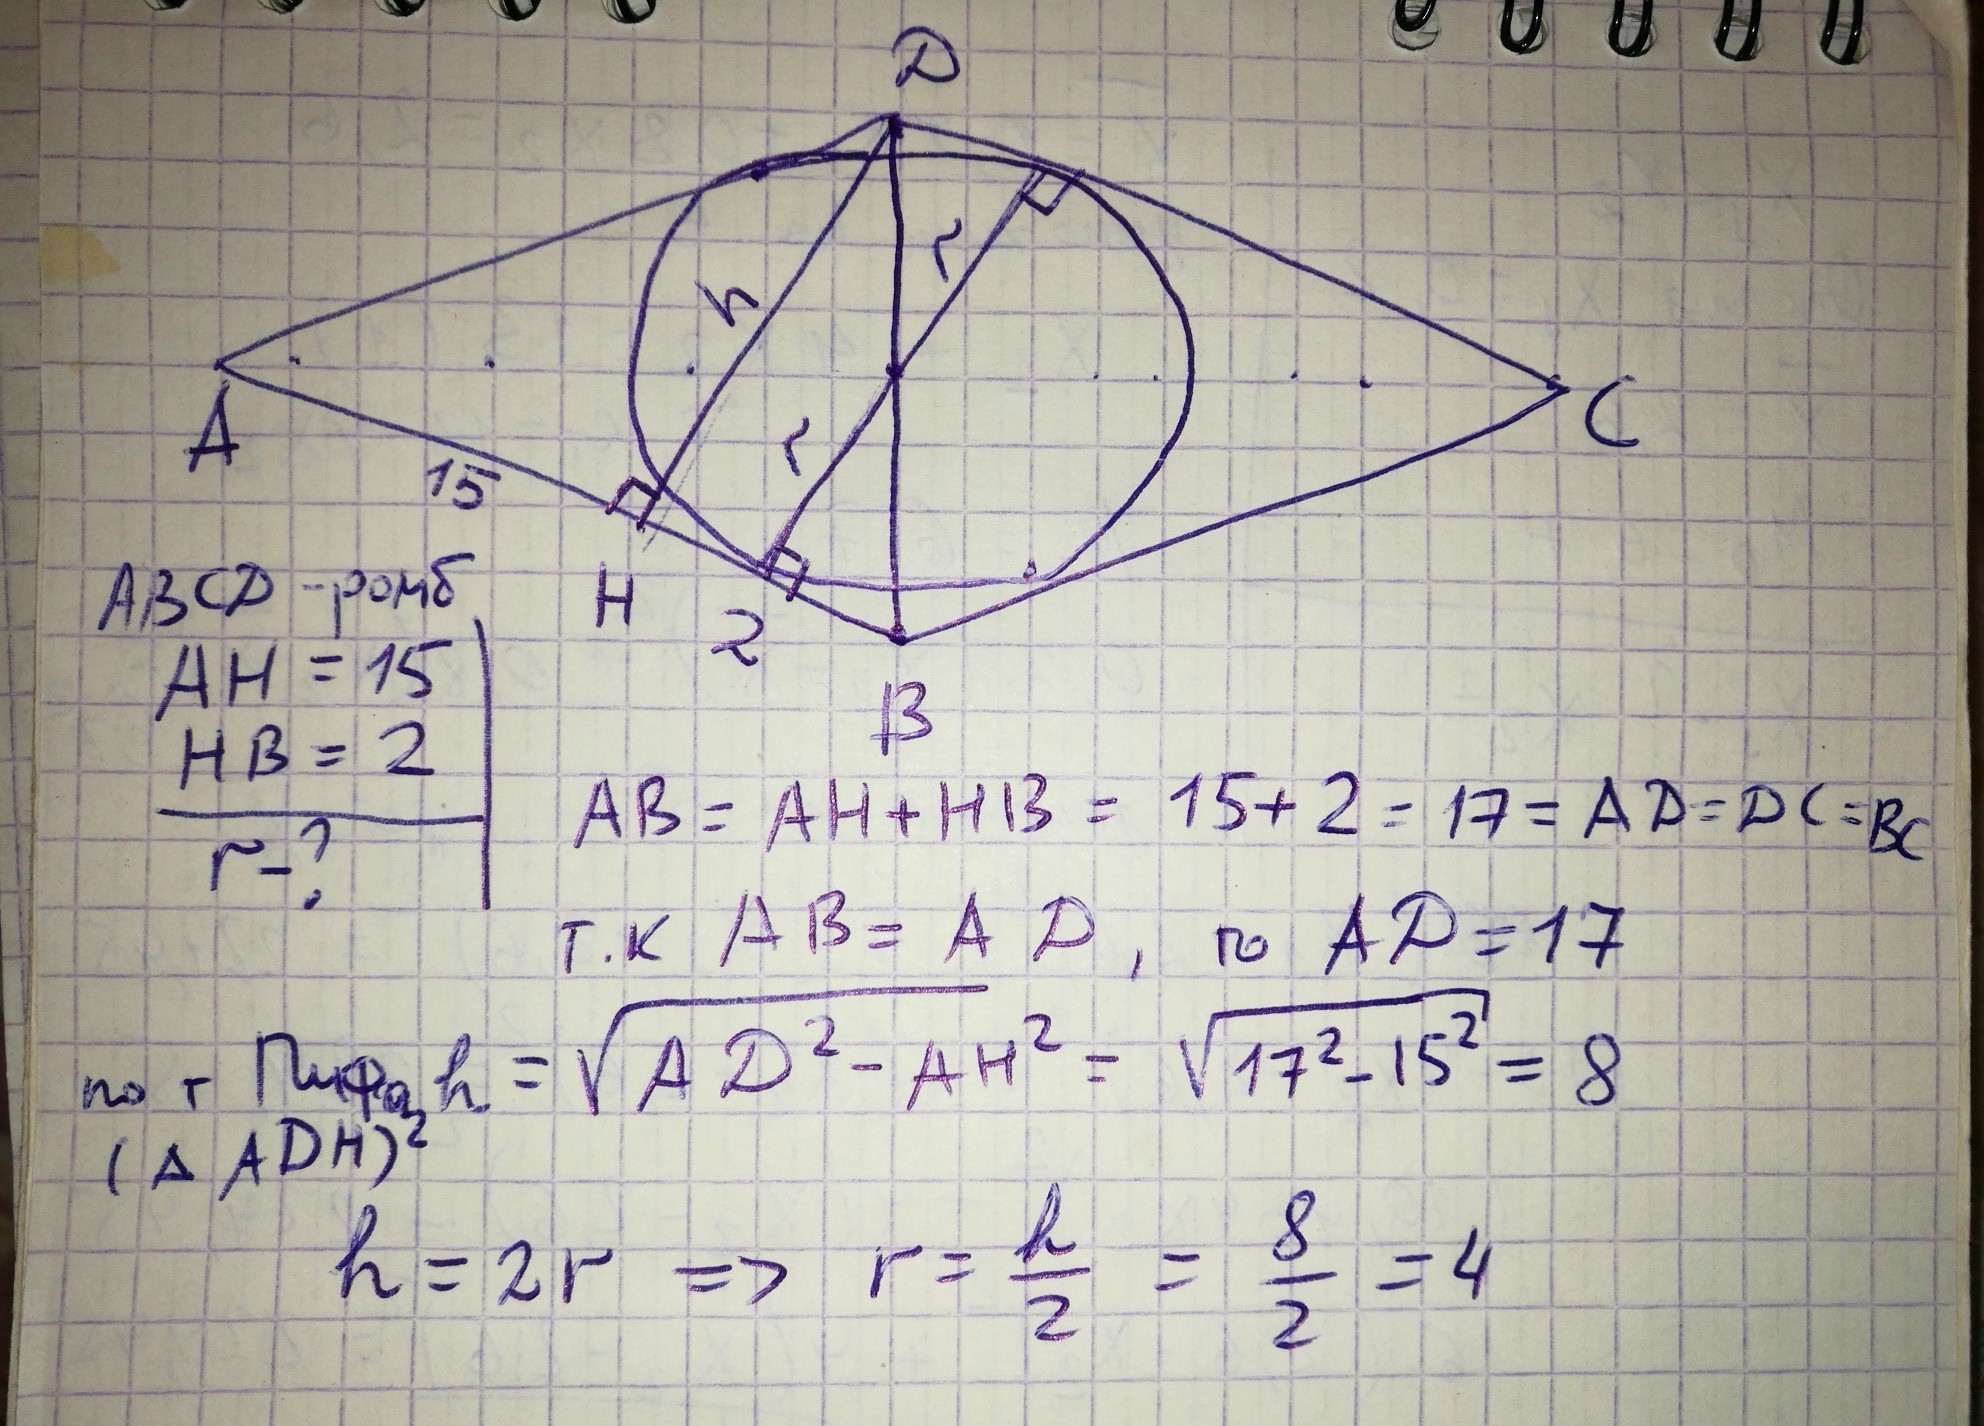 D
r
h
A
C
r
15
H
2
B
ABCD - ромб
AH = 15
HB = 2
r - ?
AB = AH + HB = 15 + 2 = 17 = AD = DC = BC
т.к AB = AD, то AD = 17
по т Пифа h = √AD² - AH² = √17² - 15² = 8
(Δ ADH)²
h = 2r => r = h/2 = 8/2 = 4